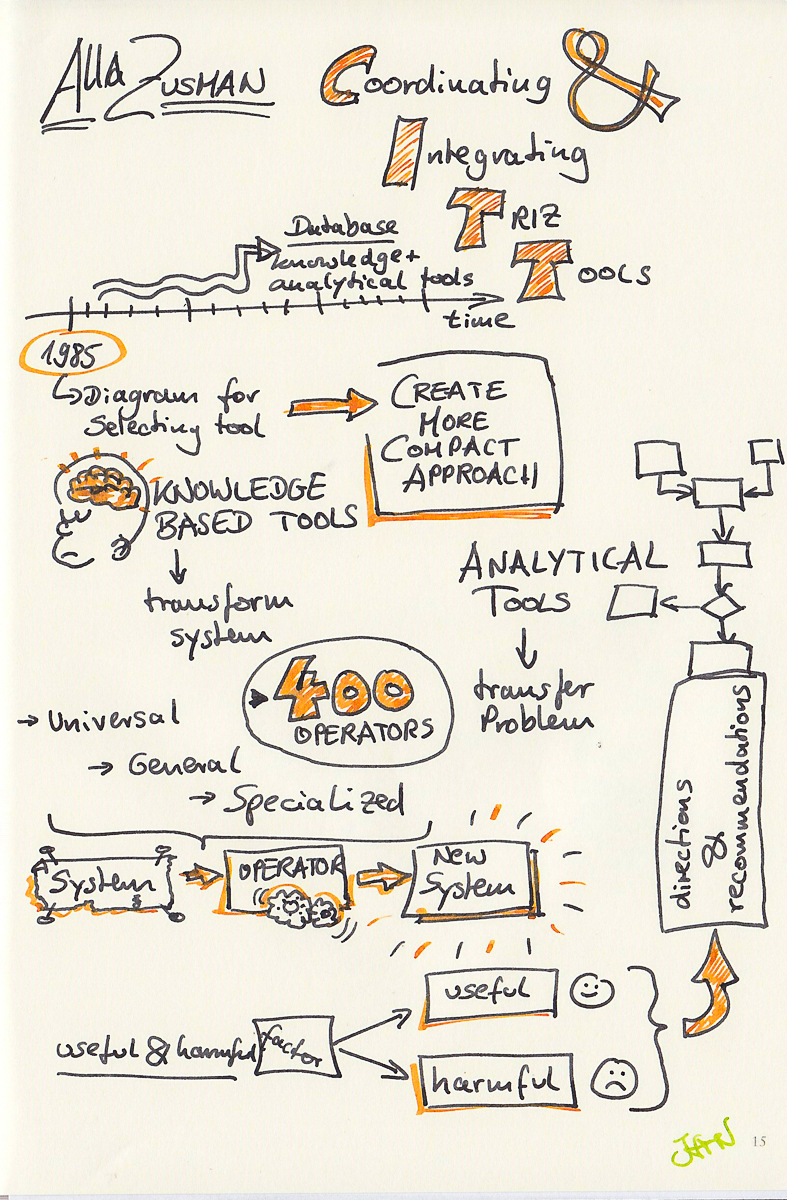 Alla Zusman
Coordinating &
Integrating
TRIZ
Tools
Database
knowledge +
analytical tools
time
1985
Diagram for
selecting tool
CREATE
MORE
COMPACT
APPROACH
KNOWLEDGE
BASED TOOLS
transform
system
ANALYTICAL
TOOLS
transfer
Problem
400
OPERATORS
→ Universal
→ General
→ Specialized
System
OPERATOR
New
System
directions
&
recommendations
useful & harmful factor
useful
harmful
JAN
15